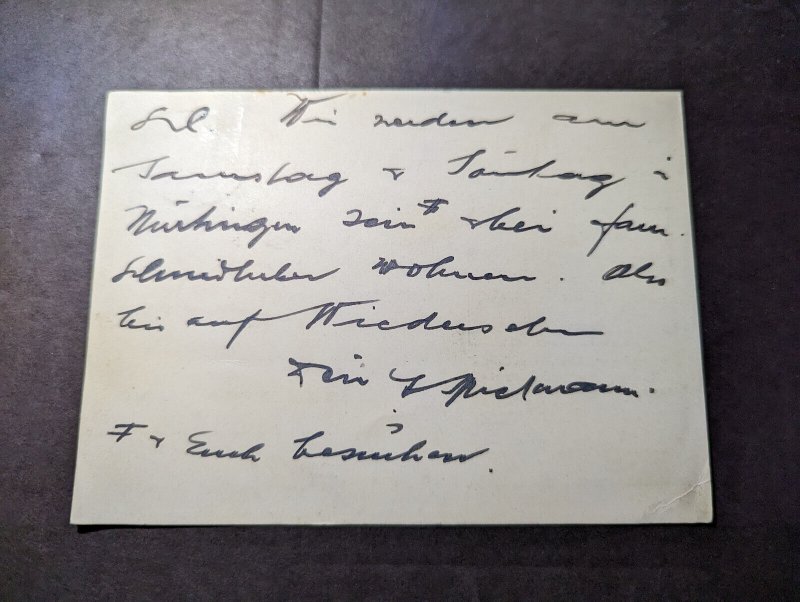 Wir werden am
Samstag & Sonntag i
Nürtingen sein ꟻ & bei Fam.
wohnen. Also
bis auf Wiedersehen
Dein
ꟻ & Euch besuchen.